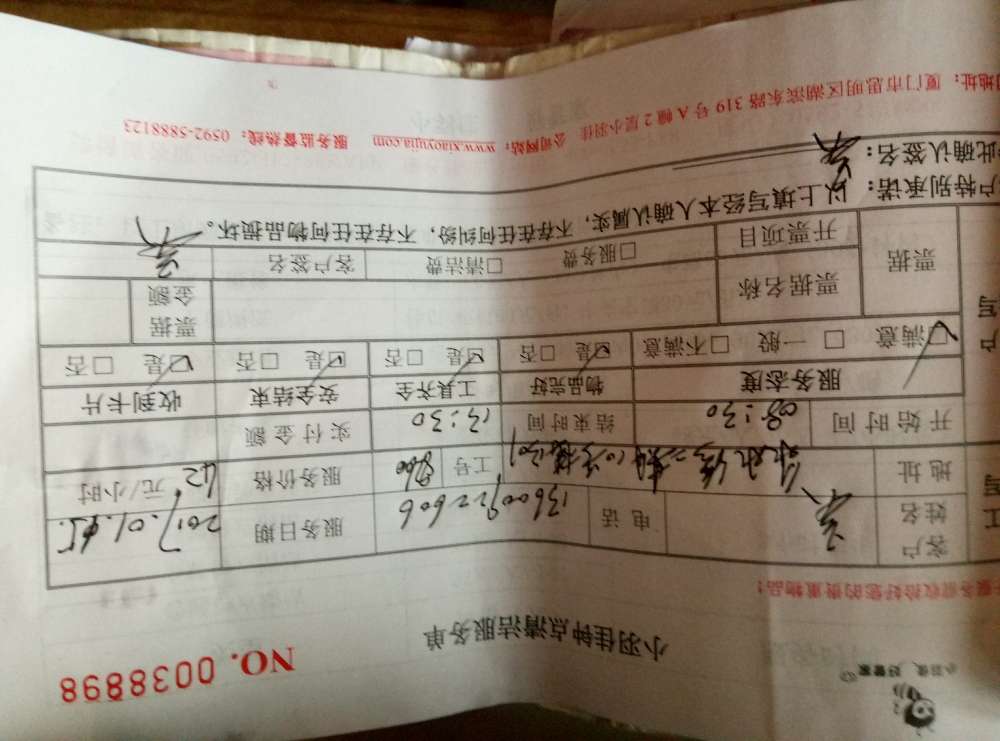 小羽佳，好管家
NO. 0038898
小羽佳钟点清洁服务单
服务前收拾好您的贵重物品！
客户姓名 电话 13600922606 服务日期 2017.01.
地址 工号 服务价格 42 元/小时
开始时间 08:30 结束时间 13:30 实付金额
服务态度 物品完好 工具齐全 安全结束 收到卡片
☑满意 □一般 □不满意 ☑是 □否 ☑是 □否 ☑是 □否 ☑是 □否
票据 票据名称 票据金额
开票项目 □服务费 □清洁费 客户签名
户特别承诺：以上填写经本人确认属实，不存在任何纠纷，不存在任何物品损坏。
此确认签名：
地址：厦门市思明区湖滨东路 319 号 A 幢 2 层小羽佳 公司网站：www.xiaoyujia.com 服务监督热线：0592-5888123